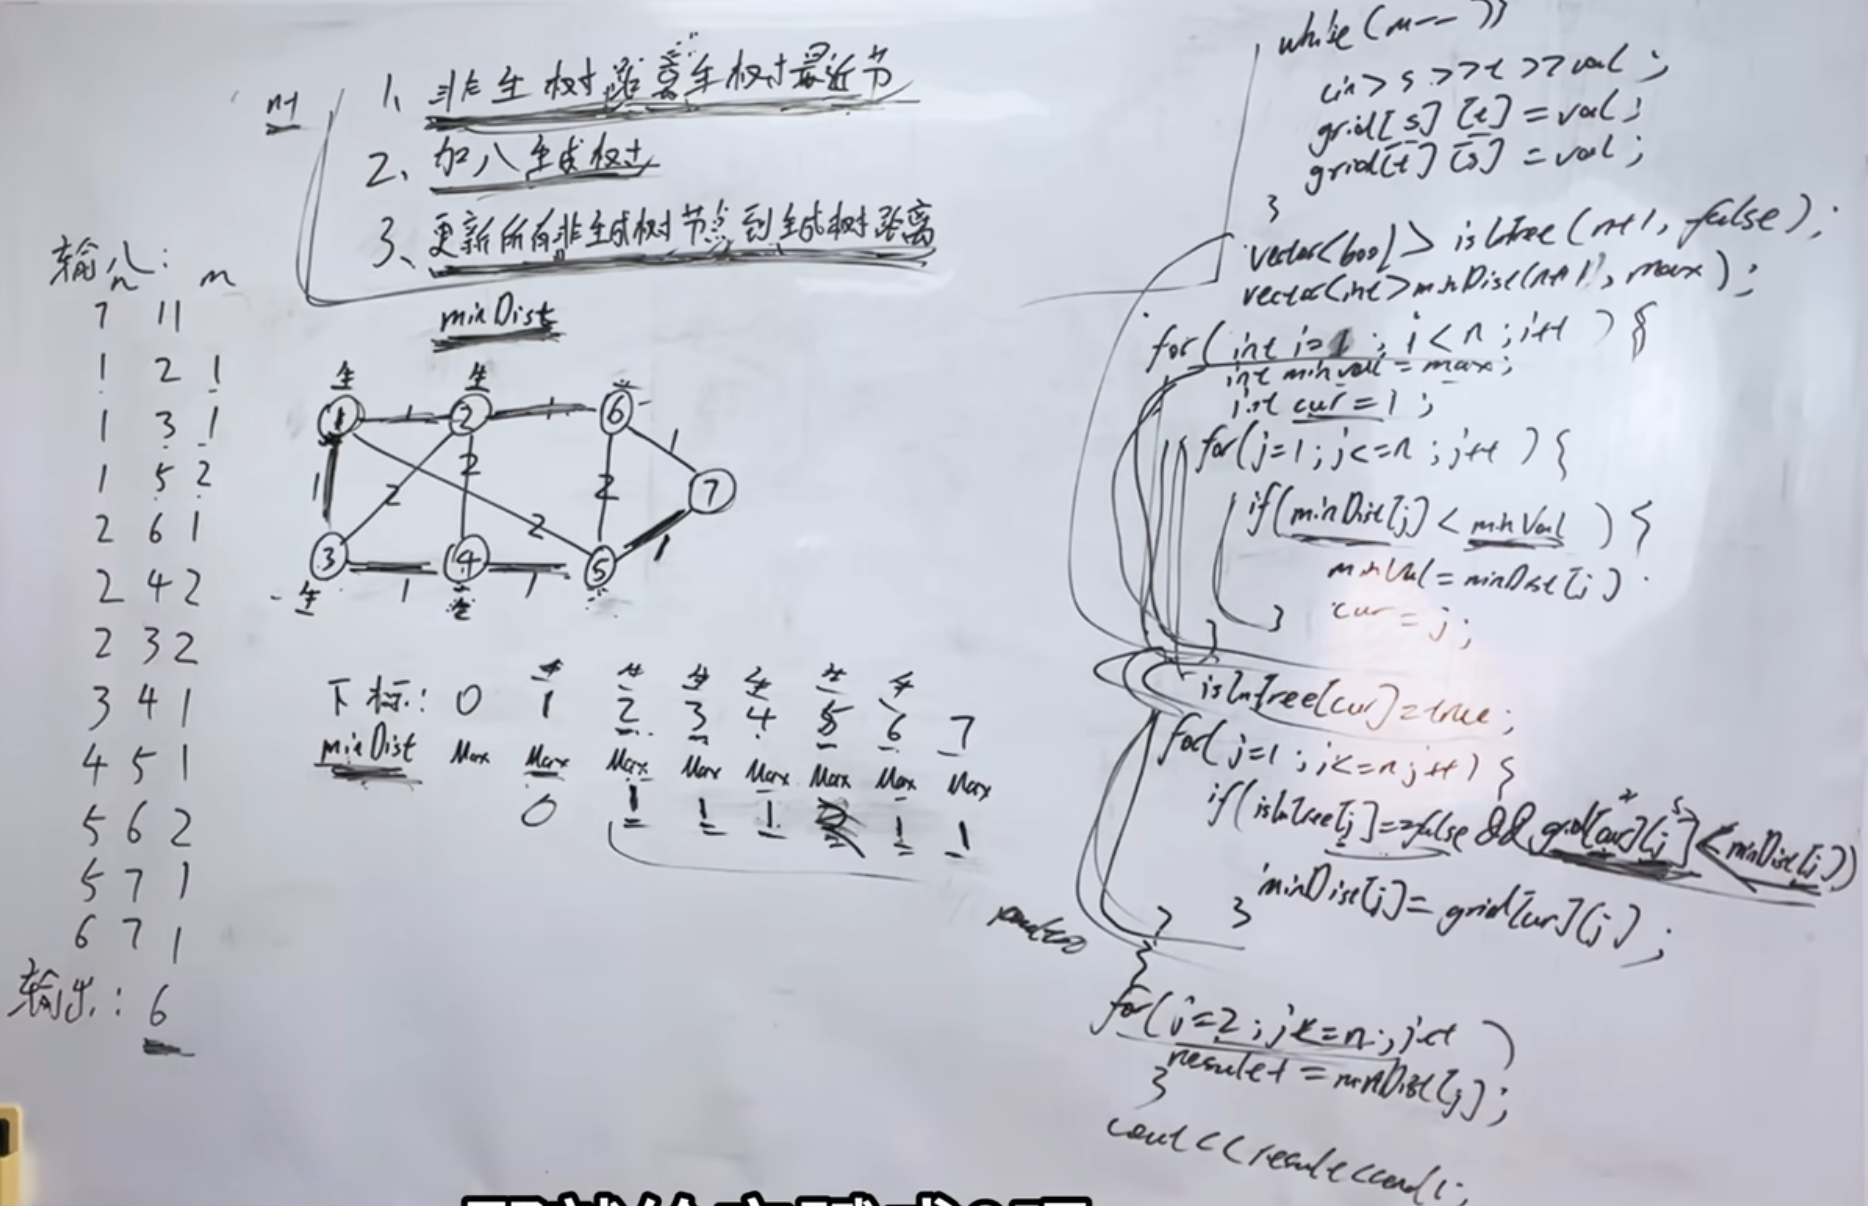 n-1
1、非生树 离生树最近节
2、加入生成树
3、更新所有非生成树节点到生成树距离
minDist
输入:
n m
7 11
1 2 1
1 3 1
1 5 2
2 6 1
2 4 2
2 3 2
3 4 1
4 5 1
5 6 2
5 7 1
6 7 1
输出: 6
生 生
1 1 2 1 6
1 2 2 2 1 7
2 1
3 1 4 1 5
生 生
生 生 生 生 生 生
下标: 0 1 2 3 4 5 6 7
minDist Max Max Max Max Max Max Max Max
0 1 1 1 2 1 1
while(m--)
cin> s >>t >>val ;
grid[s][t] = val ;
grid[t][s] = val ;
}
vector<bool> isInTree(n+1, false);
vector<int>minDist(n+1, max);
for( int i=1 ; i<n ; i++ ) {
int minval = max;
int cur = 1 ;
for(j=1 ; j<=n ; j++ ) {
if(minDist[j] < minVal ) {
minVal = minDist[j]
cur = j;
}
}
isInTree[cur]=true;
for( j=1 ; j<=n j++ ) {
if(isInTree[j]==false && grid[cur][j] < minDist[j])
minDist[j]= grid[cur][j] ;
}
}
}
for( j=2 ; j<=n ; j++ )
result+ = minDist[j] ;
}
cout<<result<<endl;